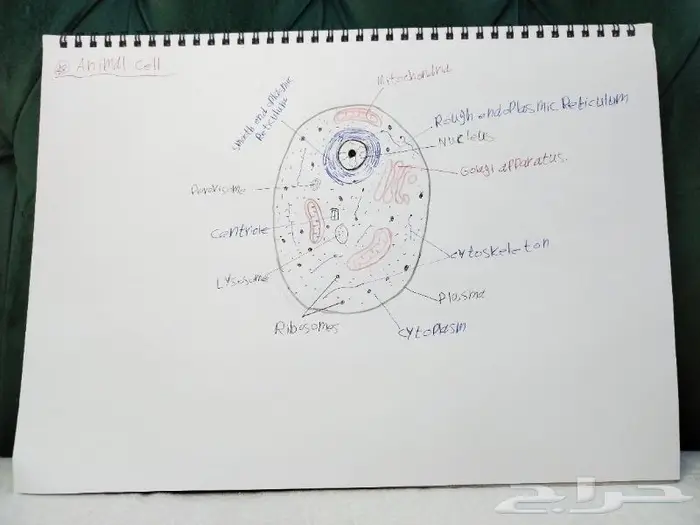 Animal Cell
Mitochondria
Smooth endoplasmic
Reticulum
Rough endoplasmic Reticulum
Nucleus
Golgi apparatus.
Centriole
Lysosome
Cytoskeleton
Plasma
Ribosomes
Cytoplasm
حراج